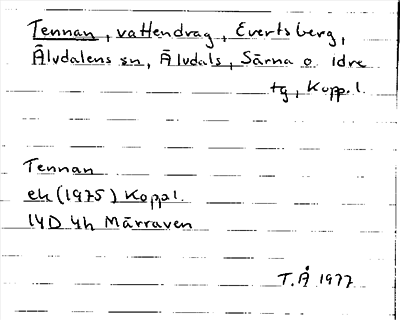 Tennan, vattendrag, Evertsberg,
Älvdalens sn, Älvdals, Särna o Idre
tg, Kopp. l.
Tennan
ek (1975) Koppl.
14D 4h Mårraven
T.Å 1977